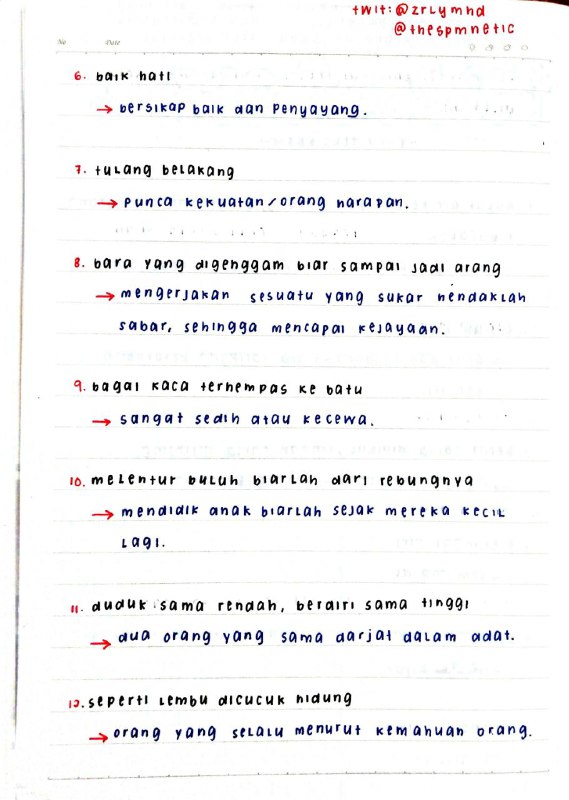 twit: @zrlymhd
@thespmnetic
No Date
6. baik hati
→ bersikap baik dan penyayang.
7. tulang belakang
→ punca kekuatan/orang harapan.
8. bara yang digenggam biar sampai jadi arang
→ mengerjakan sesuatu yang sukar hendaklah
sabar, sehingga mencapai kejayaan.
9. bagai kaca terhempas ke batu
→ sangat sedih atau kecewa.
10. melentur buluh biarlah dari rebungnya
→ mendidik anak biarlah sejak mereka kecil
lagi.
11. duduk sama rendah, berdiri sama tinggi
→ dua orang yang sama darjat dalam adat.
12. seperti lembu dicucuk hidung
→ orang yang selalu menurut kemahuan orang.